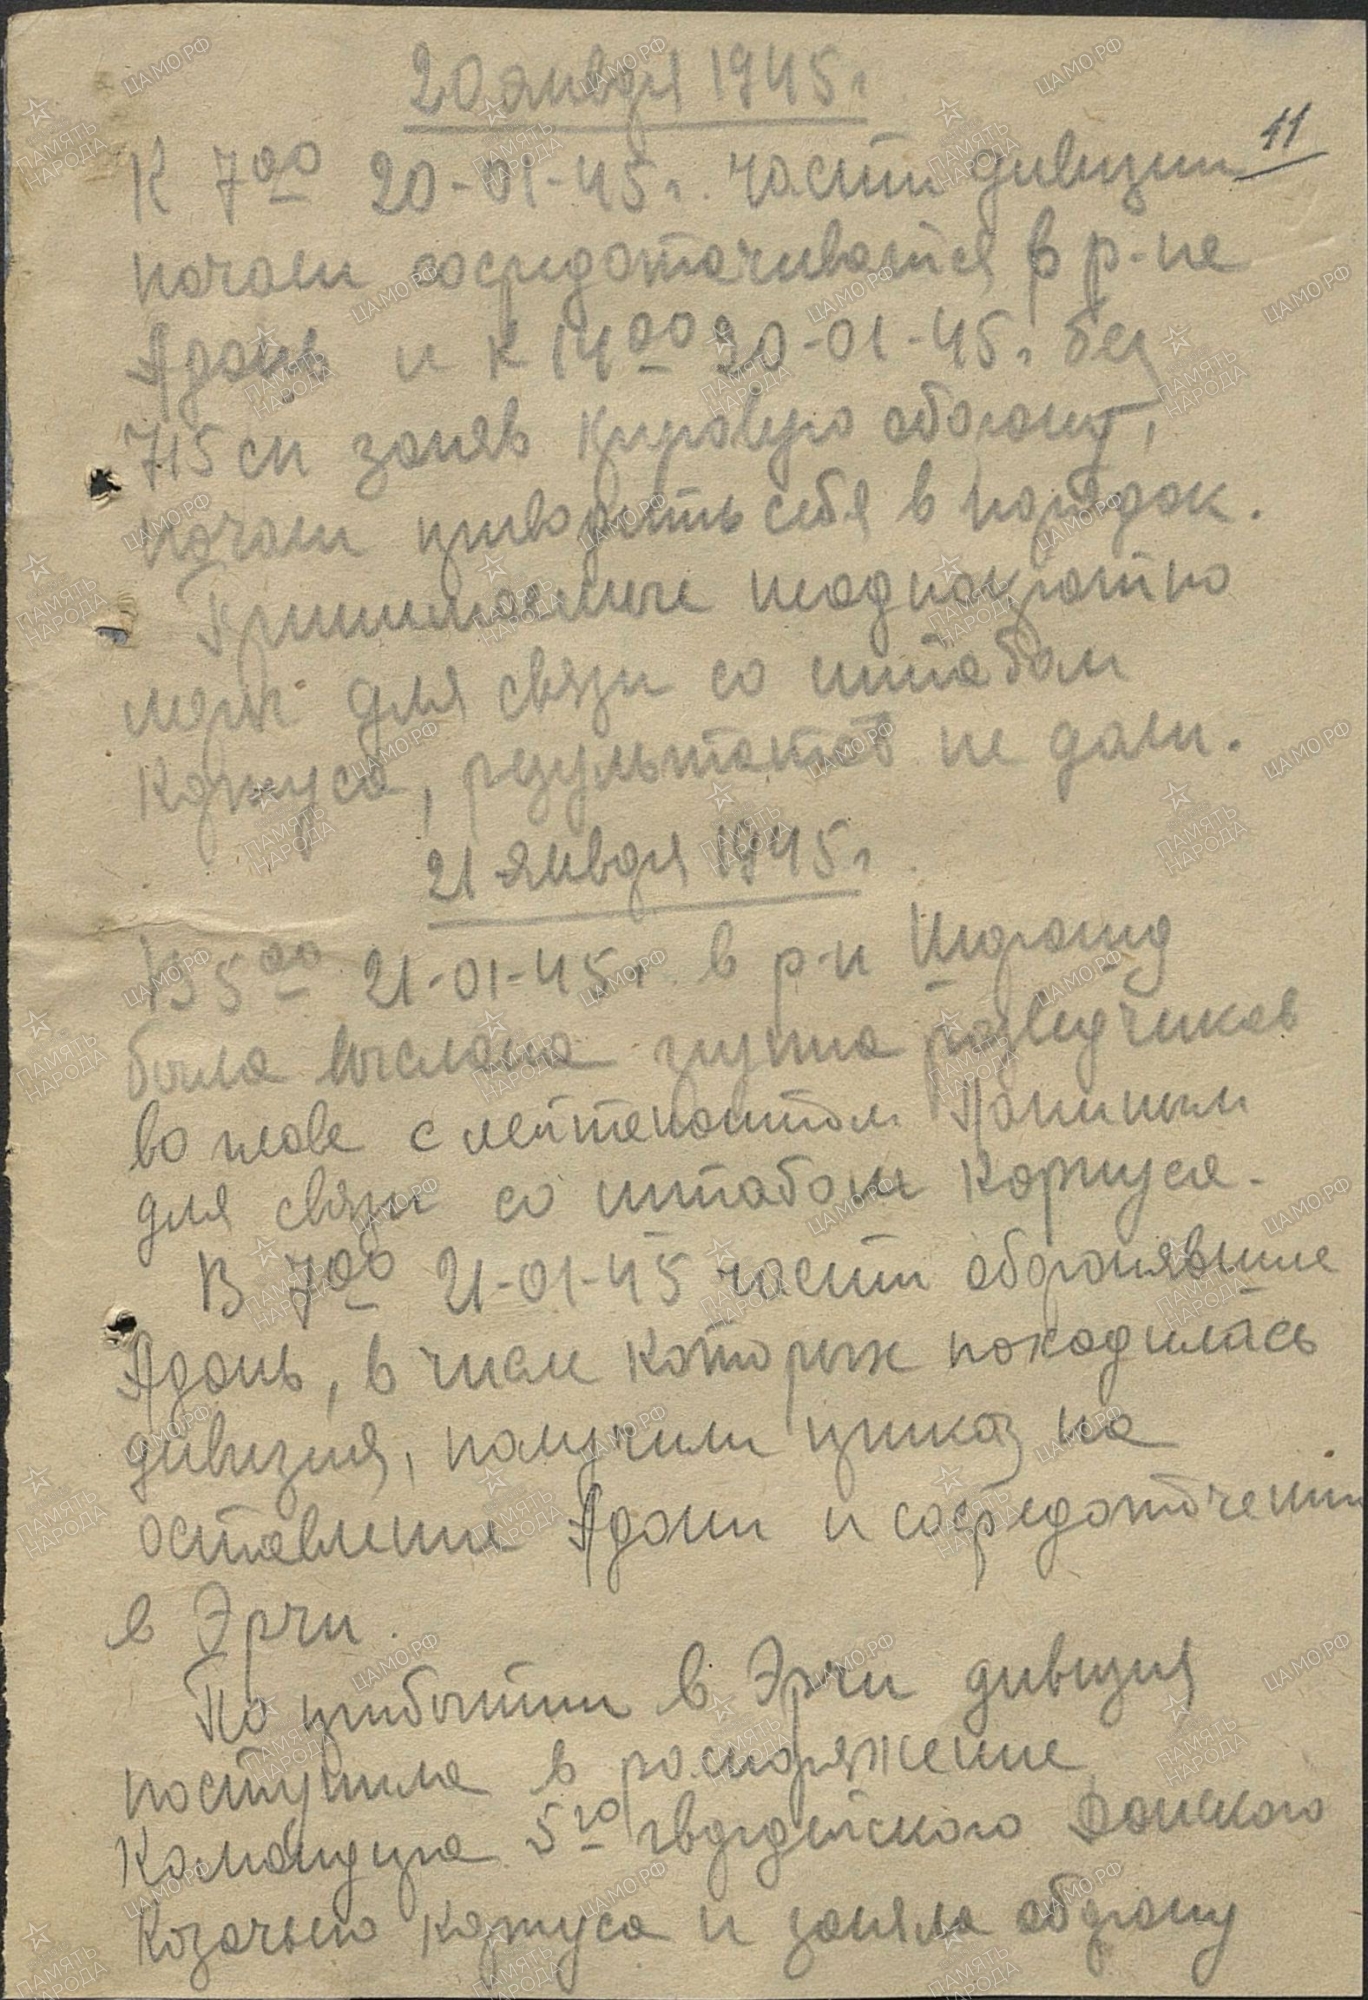 20 января 1945 г.
11
К 7⁰⁰ 20-01-45 г. части дивизии
начали сосредотачиваться в р-не
Адонь и к 14⁰⁰ 20-01-45 г. без
715 сп заняв круговую оборону,
начали приводить себя в порядок.
Принимаемые неоднократно
меры для связи со штабом
корпуса, результатов не дали.
21 января 1945 г.
В 5⁰⁰ 21-01-45 г. в р-н Шорошд
была выслана группа разведчиков
во главе с лейтенантом Паниным
для связи со штабом корпуса.
В 7⁰⁰ 21-01-45 части оборонявшие
Адонь, в числе которых находилась
дивизия, получили приказ на
оставление Адони и сосредоточении
в Эрчи.
По прибытии в Эрчи дивизия
поступила в распоряжение
командира 5го гвардейского Донского
Казачьего корпуса и заняла оборону
ПАМЯТЬ НАРОДА
ЦАМО.РФ